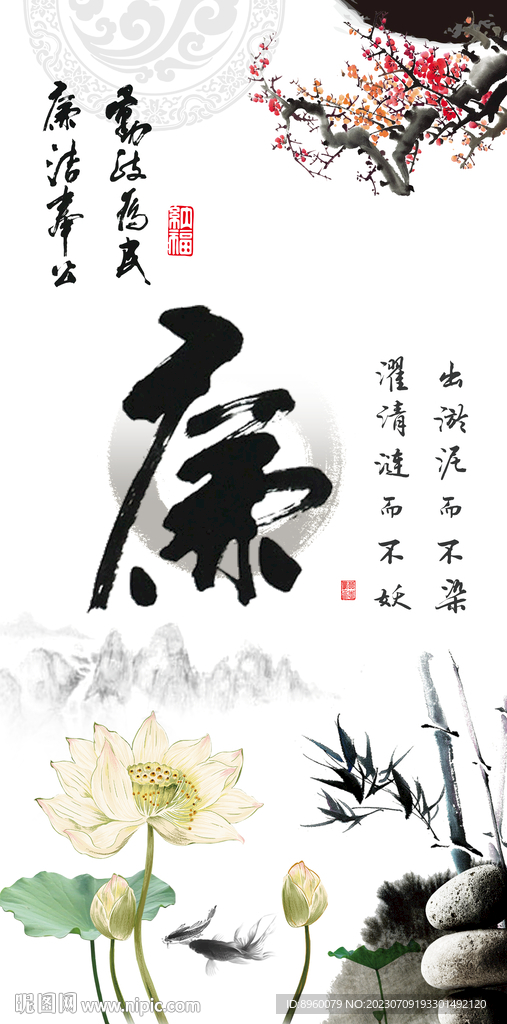 勤政为民
廉洁奉公
红福
廉
出淤泥而不染
濯清涟而不妖
昵图网 www.nipic.com
ID:8960079 NO:20230709193301492120